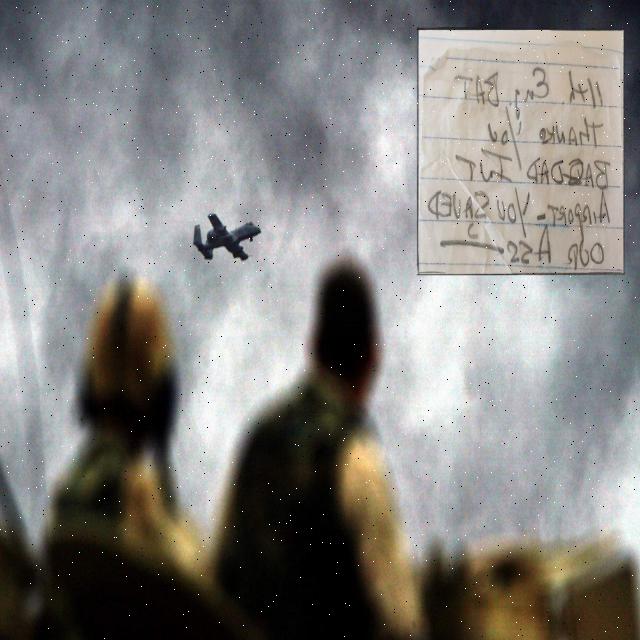 11th En, BAT
THANKS 'er
BAGDAD INT
AIRPORT- YOU SAVED
OUR ASS